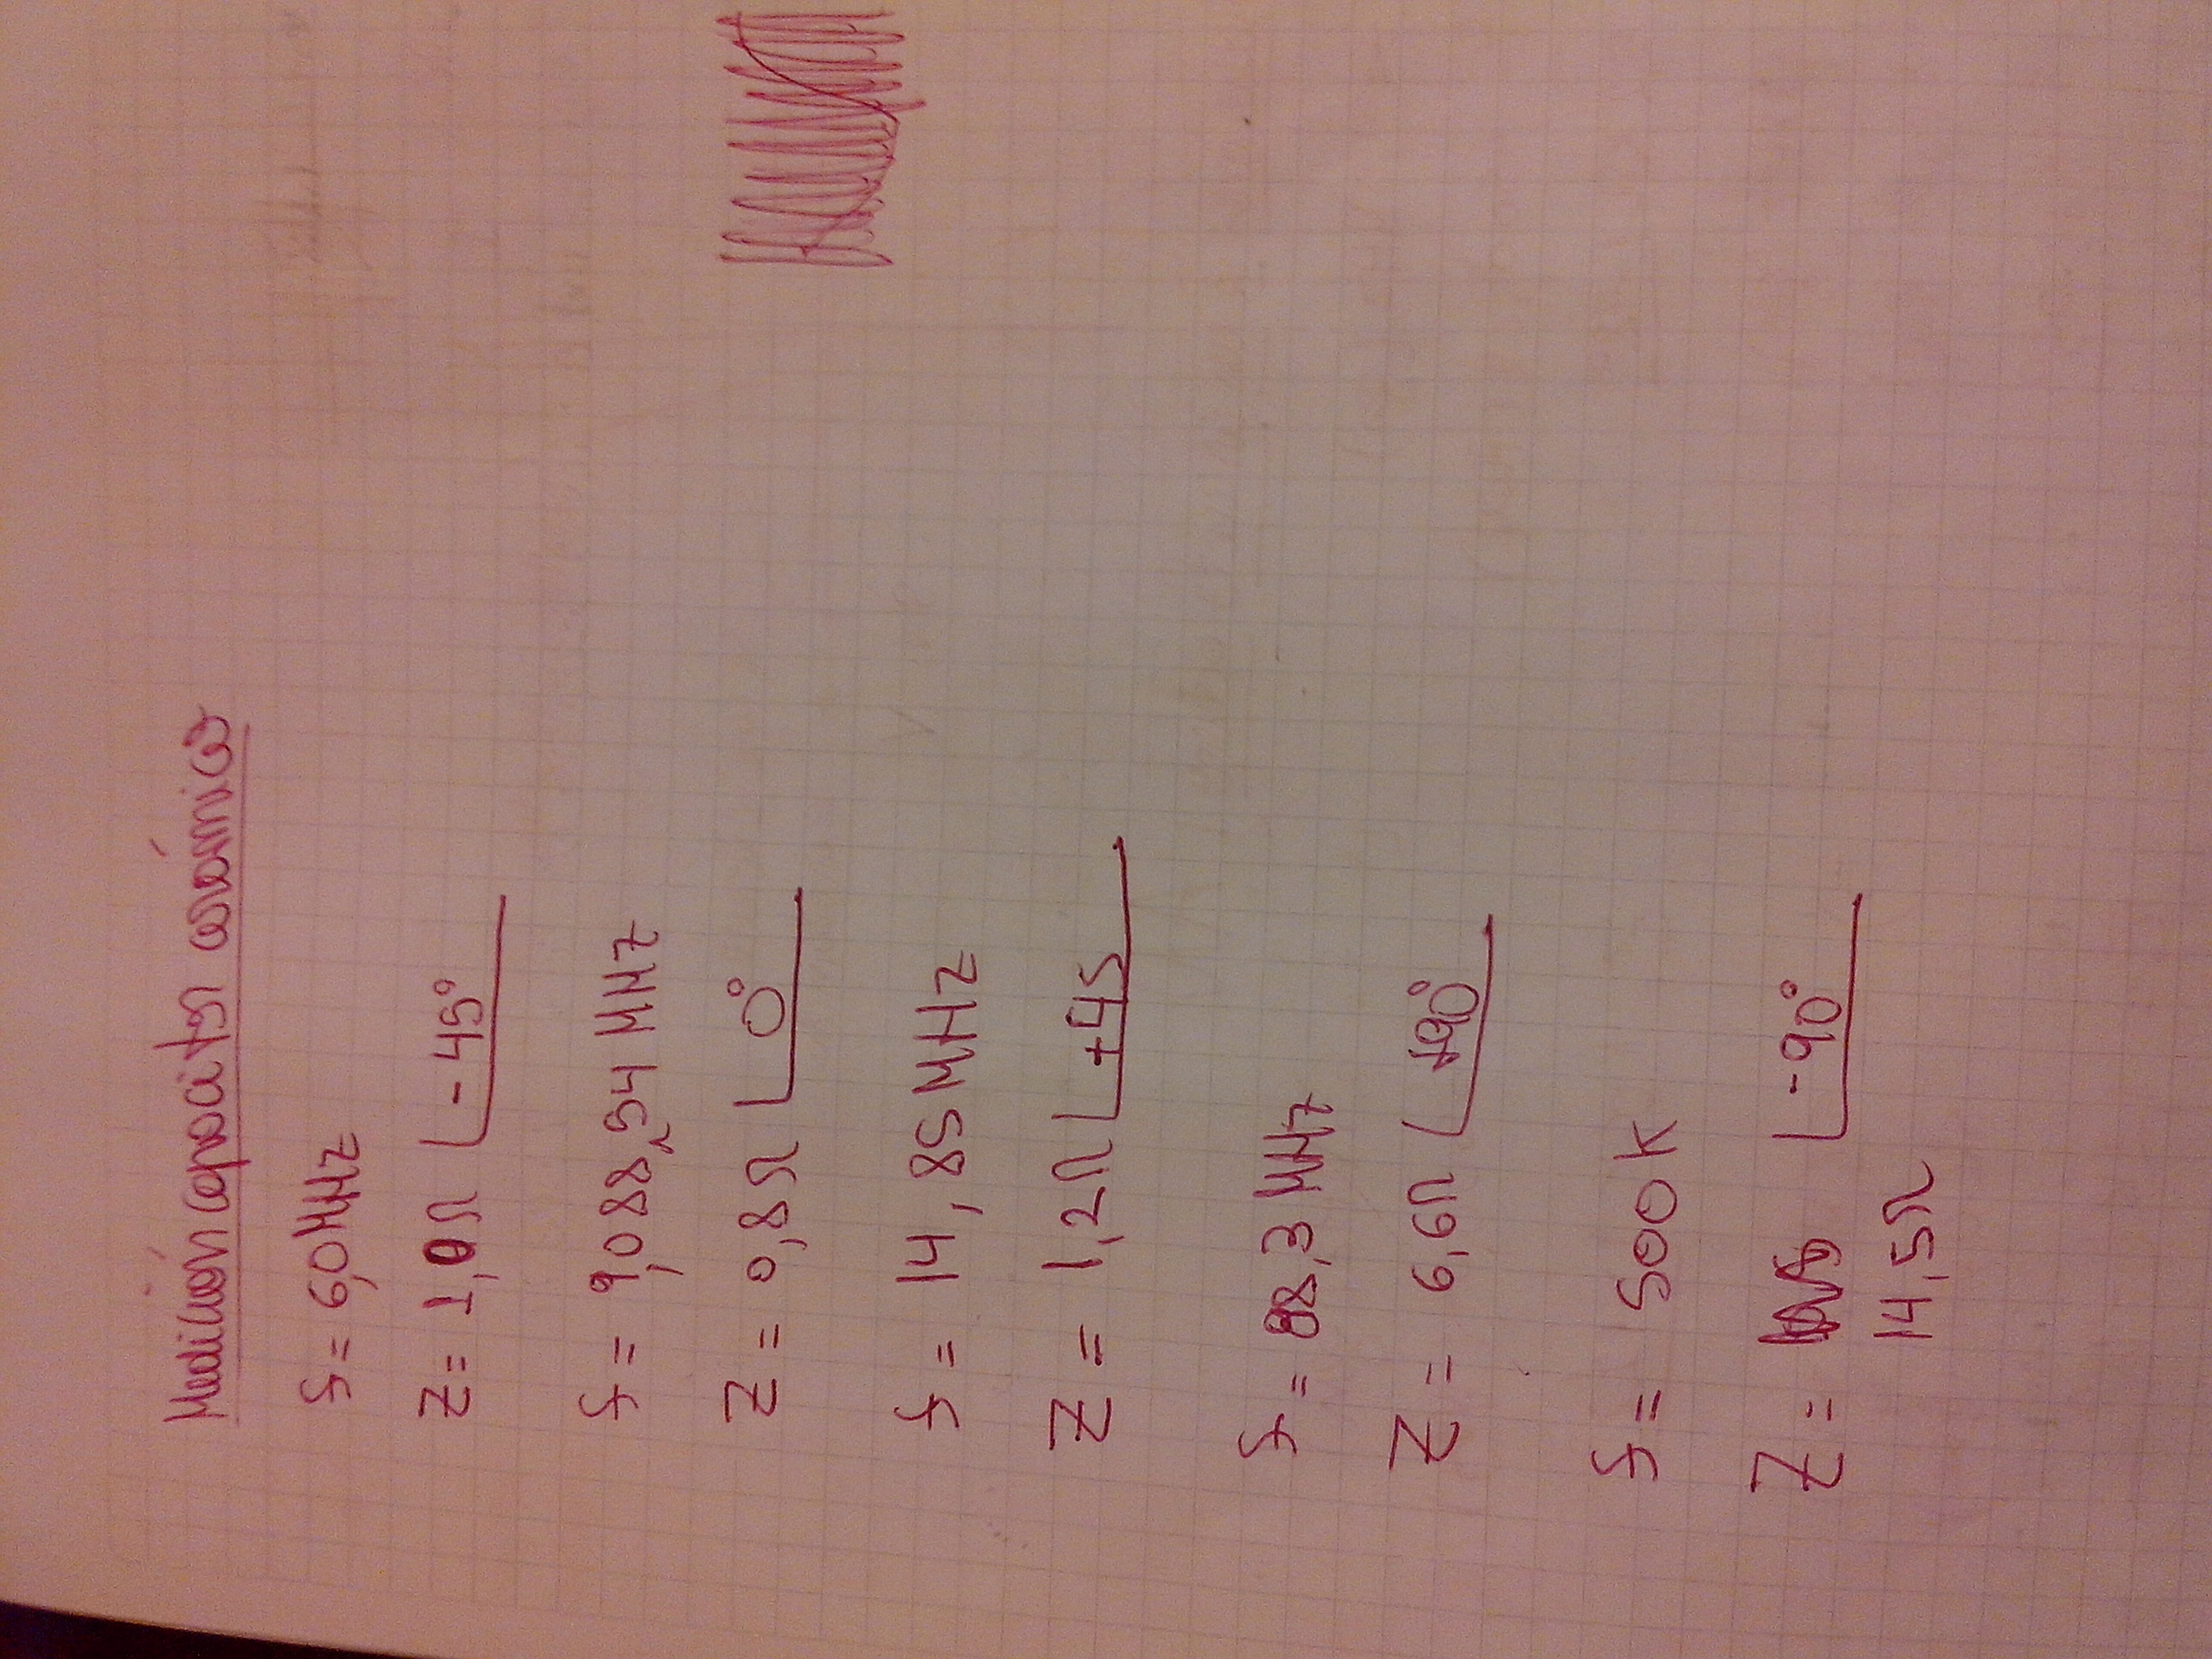 Medición capacitor cerámico
f = 6,0MHz
Z = 1,0Ω ∠-45°
f = 9,088,54 MHz
Z = 0,8Ω ∠0°
f = 14,85MHz
Z = 1,2Ω ∠+45
f = 88,3 MHz
Z = 6,6Ω ∠+90°
f = 500K
Z = ∠-90°
14,5Ω